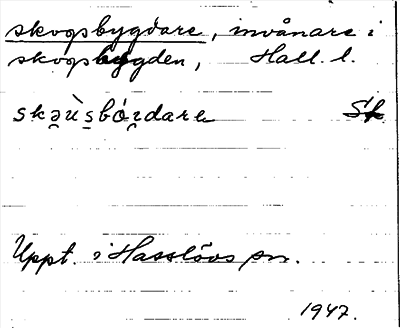 skogsbygdare, invånare i
skogsbygden, Hall. l.
skə̯ùs̯bór̯dare Sk
Uppt. i Hasslövs sn.
1947.